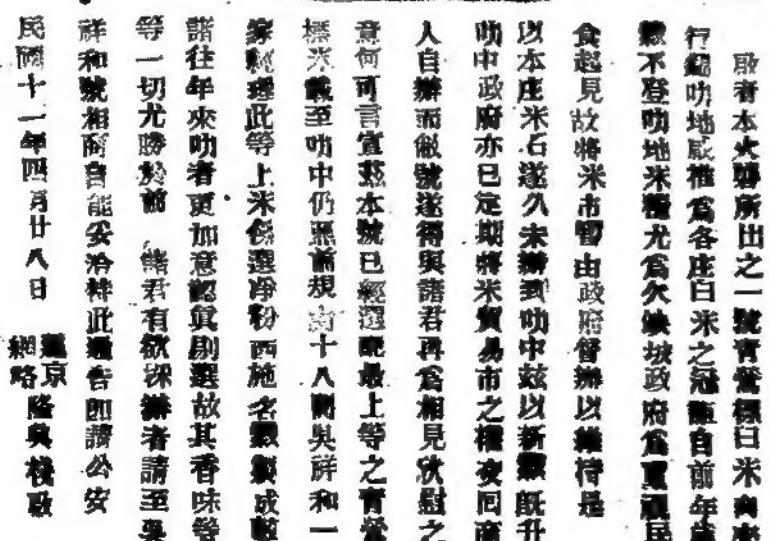 啟者本火礱所出之一號青鶯標白米向來
行銷叻地感推為各庄白米之冠聽自前年歲
歉不登叻地米糧尤為欠缺坡政府為重視民
食起見故將米市暫由政府督辦以維持是
以本庄米石遂久未辦到叻中茲以新穀既升
叻中政府亦已定期將米貿易市之權交回商
人自辦而敝號遂得與諸君再為相見欣慰之
意何可言宣茲本號已經選配最上等之青鶯
標米載至叻中仍照前規由十八間吳祥和一
家經理此等上米係選淨粉西施名穀製成較
諸往年來叻者更加意認真剔選故其香味等
等一切尤勝於前 諸君有欲採辦者請至吳
祥和號相商自能妥洽特此通告即請公安
民國十一年四月廿八日
暹京
網略 隆興棧啟